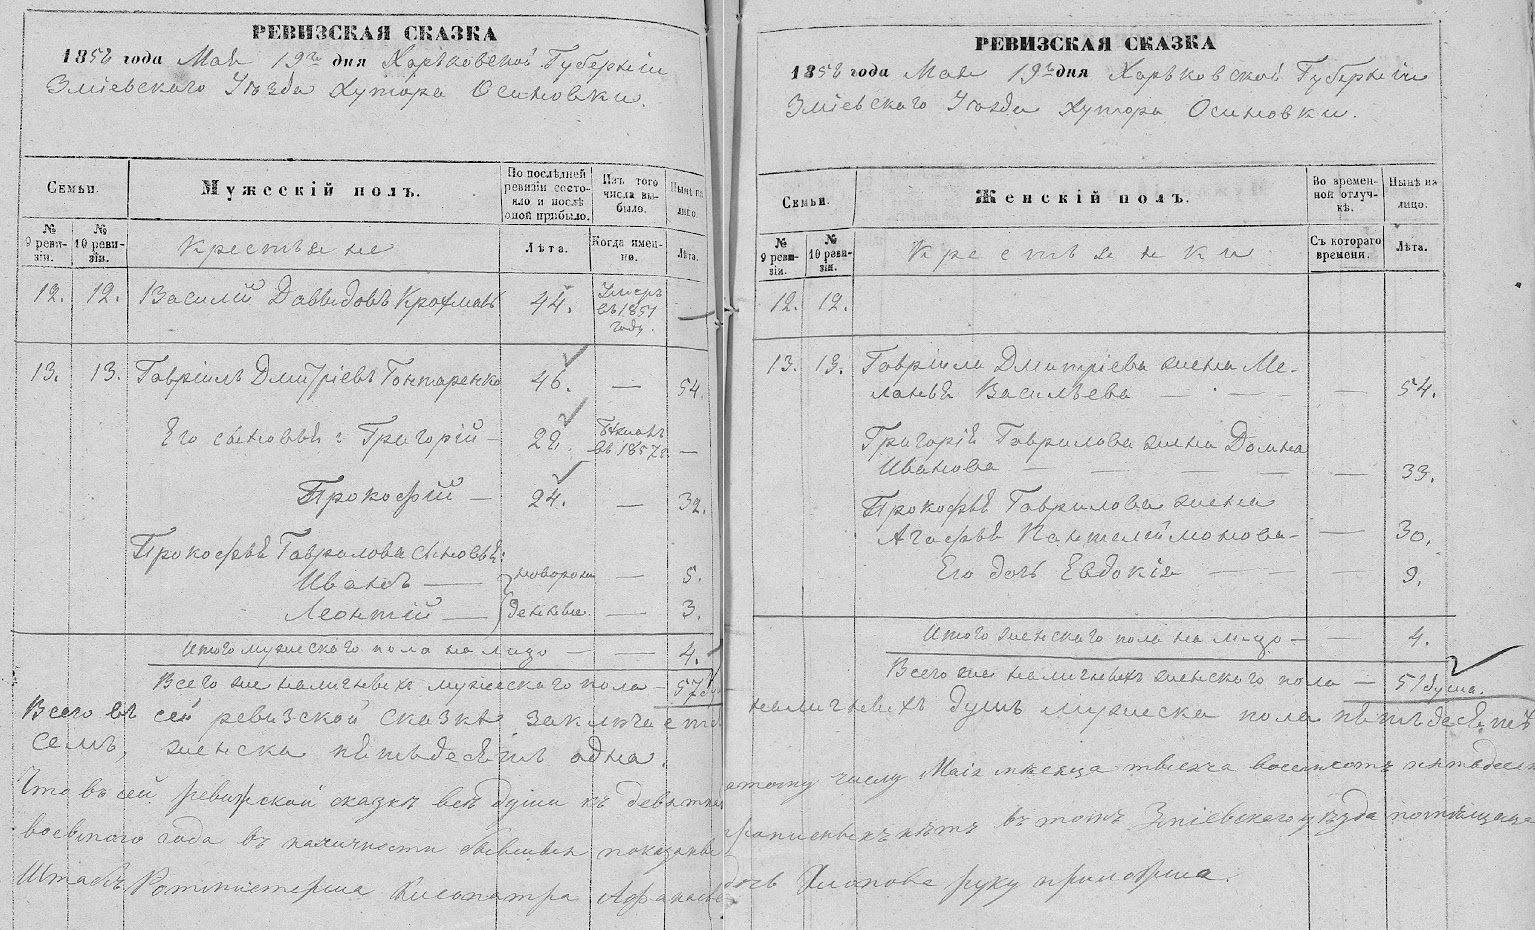 РЕВИЗСКАЯ СКАЗКА
1858 года Мая 19го дня Харьковской Губернiи
Змiевскаго Уѣзда Хутора Осиновки.
Семьи.
Мужескiй полъ.
По послѣдней ревизiи состояло и послѣ оной прибыло.
Изъ того числа выбыло.
Нынѣ на лицо.
№ 9 ревизiи.
№ 10 ревизiи.
Крестьяне
Лѣта.
Когда именно.
Лѣта.
12. 12. Василiй Давыдовъ 44. Умеръ въ 1851 году. —
13. 13. Гаврiилъ Дмитрiевъ Гонтаренко 46. — 54.
Его сыновья: Григорiй — 22. въ 1857г. —
Прокофiй — 24. — 32.
Прокофья Гаврилова сыновья:
Иванъ — новорож — 5.
Леонтiй — денные. — 3.
Итого мужескаго пола на лицо — — 4.
Всего же наличныхъ мужескаго пола — 57
РЕВИЗСКАЯ СКАЗКА
1858 года Мая 19го дня Харьковской Губернiи
Змiевскаго Уѣзда Хутора Осиновки.
Семьи.
Женскiй полъ.
Во временной отлучкѣ.
Нынѣ на лицо.
№ 9 ревизiи.
№ 10 ревизiи.
Крестьянки
Съ котораго времени.
Лѣта.
12. 12.
13. 13. Гаврiила Дмитрiева жена Ме-
ланья Васильева — — — — 54.
Григорiя Гаврилова жена Домна
Иванова — — — — — 33.
Прокофья Гаврилова жена
Агафья Пантелеймонова — — 30.
Его дочь Евдокiя — — — 9.
Итого женскаго пола на лицо — — 4.
Всего же наличныхъ женскаго пола — 51 душа.
Всего въ сей ревизской сказкѣ заключается наличныхъ душъ мужеска пола пятьдесятъ
семь, женска пятьдесятъ одна.
Что въ сей ревизской сказкѣ всѣ души къ девятнадцатому числу Маiя мѣсяца тысяча восемьсотъ пятьдесятъ
восьмого года въ наличности бывшiя показаны и прописныхъ нѣтъ въ томъ Змiевскаго уѣзда помѣщица
Штабъ Ротмистерша Клеопатра дочь руку приложила.